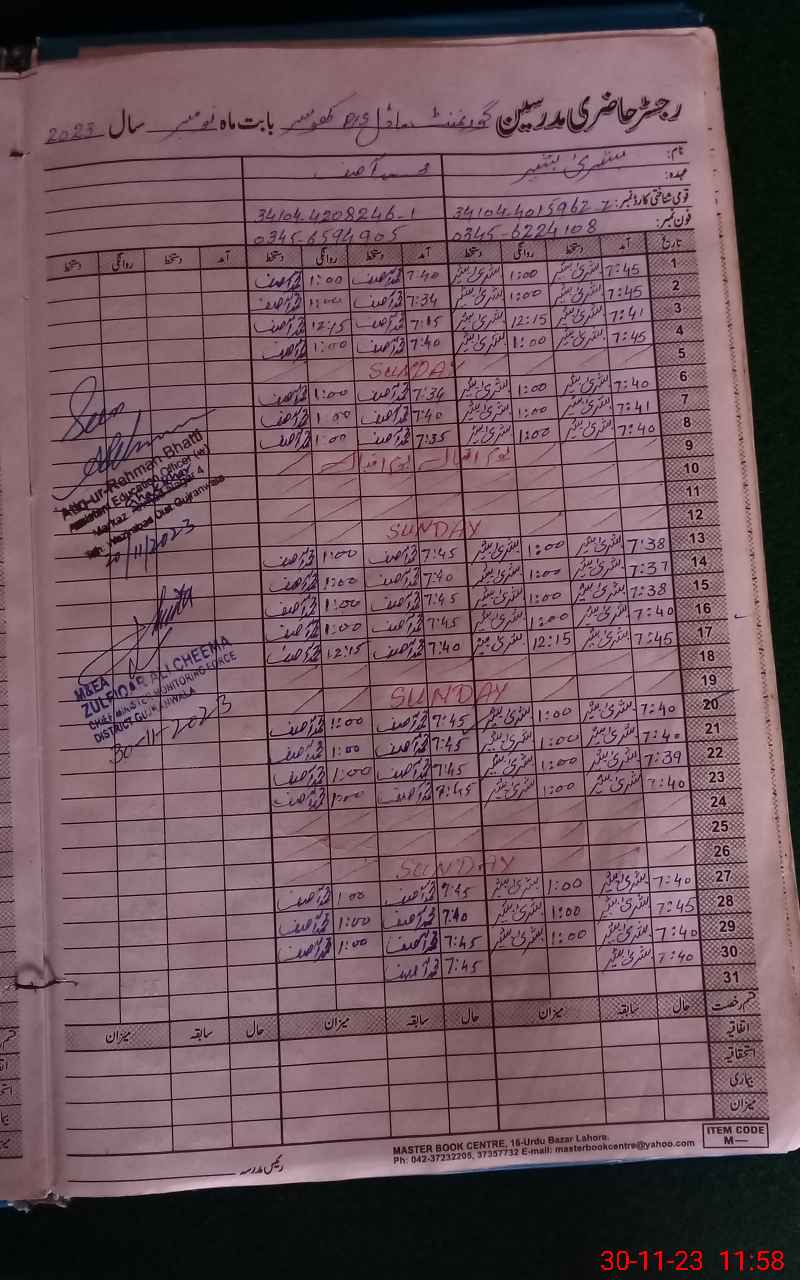 رجسٹر حاضری مدرسین گورنمنٹ ماڈل P/S بابت ماہ نومبر سال 2023
نام: بشریٰ بشیر محمد آصف
عہدہ:
قومی شناختی کارڈ نمبر: 34104-4015962-2 34104-4208246-1
فون نمبر: 0345-6224108 0345-6594905
تاریخ آمد دستخط روانگی دستخط آمد دستخط روانگی دستخط آمد دستخط روانگی دستخط
1 7:45 بشریٰ بشیر 1:00 بشریٰ بشیر 7:40 محمد آصف 1:00 محمد آصف
2 7:45 بشریٰ بشیر 1:00 بشریٰ بشیر 7:34 محمد آصف 1:00 محمد آصف
3 7:41 بشریٰ بشیر 12:15 بشریٰ بشیر 7:15 محمد آصف 12:15 محمد آصف
4 7:45 بشریٰ بشیر 1:00 بشریٰ بشیر 7:40 محمد آصف 1:00 محمد آصف
5 SUNDAY
6 7:40 بشریٰ بشیر 1:00 بشریٰ بشیر 7:34 محمد آصف 1:00 محمد آصف
7 7:41 بشریٰ بشیر 1:00 بشریٰ بشیر 7:40 محمد آصف 1:00 محمد آصف
8 7:40 بشریٰ بشیر 1:00 بشریٰ بشیر 7:35 محمد آصف 1:00 محمد آصف
9 یوم اقبال یوم اقبال
10
11
12 SUNDAY
13 7:38 بشریٰ بشیر 1:00 بشریٰ بشیر 7:45 محمد آصف 1:00 محمد آصف
14 7:37 بشریٰ بشیر 1:00 بشریٰ بشیر 7:40 محمد آصف 1:00 محمد آصف
15 7:38 بشریٰ بشیر 1:00 بشریٰ بشیر 7:45 محمد آصف 1:00 محمد آصف
16 7:40 بشریٰ بشیر 1:00 بشریٰ بشیر 7:45 محمد آصف 1:00 محمد آصف
17 7:45 بشریٰ بشیر 12:15 بشریٰ بشیر 7:40 محمد آصف 12:15 محمد آصف
18
19 SUNDAY
20 7:40 بشریٰ بشیر 1:00 بشریٰ بشیر 7:45 محمد آصف 1:00 محمد آصف
21 7:40 بشریٰ بشیر 1:00 بشریٰ بشیر 7:45 محمد آصف 1:00 محمد آصف
22 7:39 بشریٰ بشیر 1:00 بشریٰ بشیر 7:45 محمد آصف 1:00 محمد آصف
23 7:40 بشریٰ بشیر 1:00 بشریٰ بشیر 7:45 محمد آصف 1:00 محمد آصف
24
25
26 SUNDAY
27 7:40 بشریٰ بشیر 1:00 بشریٰ بشیر 7:45 محمد آصف 1:00 محمد آصف
28 7:45 بشریٰ بشیر 1:00 بشریٰ بشیر 7:40 محمد آصف 1:00 محمد آصف
29 7:40 بشریٰ بشیر 1:00 بشریٰ بشیر 7:45 محمد آصف 1:00 محمد آصف
30 7:40 بشریٰ بشیر 7:45 محمد آصف
31
Seen
Atiq-ur-Rehman Bhatti
Assistant Education Officer
Markaz
Teh: Wazirabad Distt Gujranwala
20/11/2023
M&EA
ZULFIQAR ALI CHEEMA
CHIEF MINISTER MONITORING FORCE
DISTRICT GUJRANWALA
30-11-2023
قسم رخصت حال سابقہ میزان حال سابقہ میزان حال سابقہ میزان
اتفاقیہ
استحقاقیہ
بیماری
میزان
ITEM CODE
M—
MASTER BOOK CENTRE, 16-Urdu Bazar Lahore.
Ph: 042-37232205, 37357732 E-mail: masterbookcentre@yahoo.com
رئیس مدرسہ
30-11-23 11:58